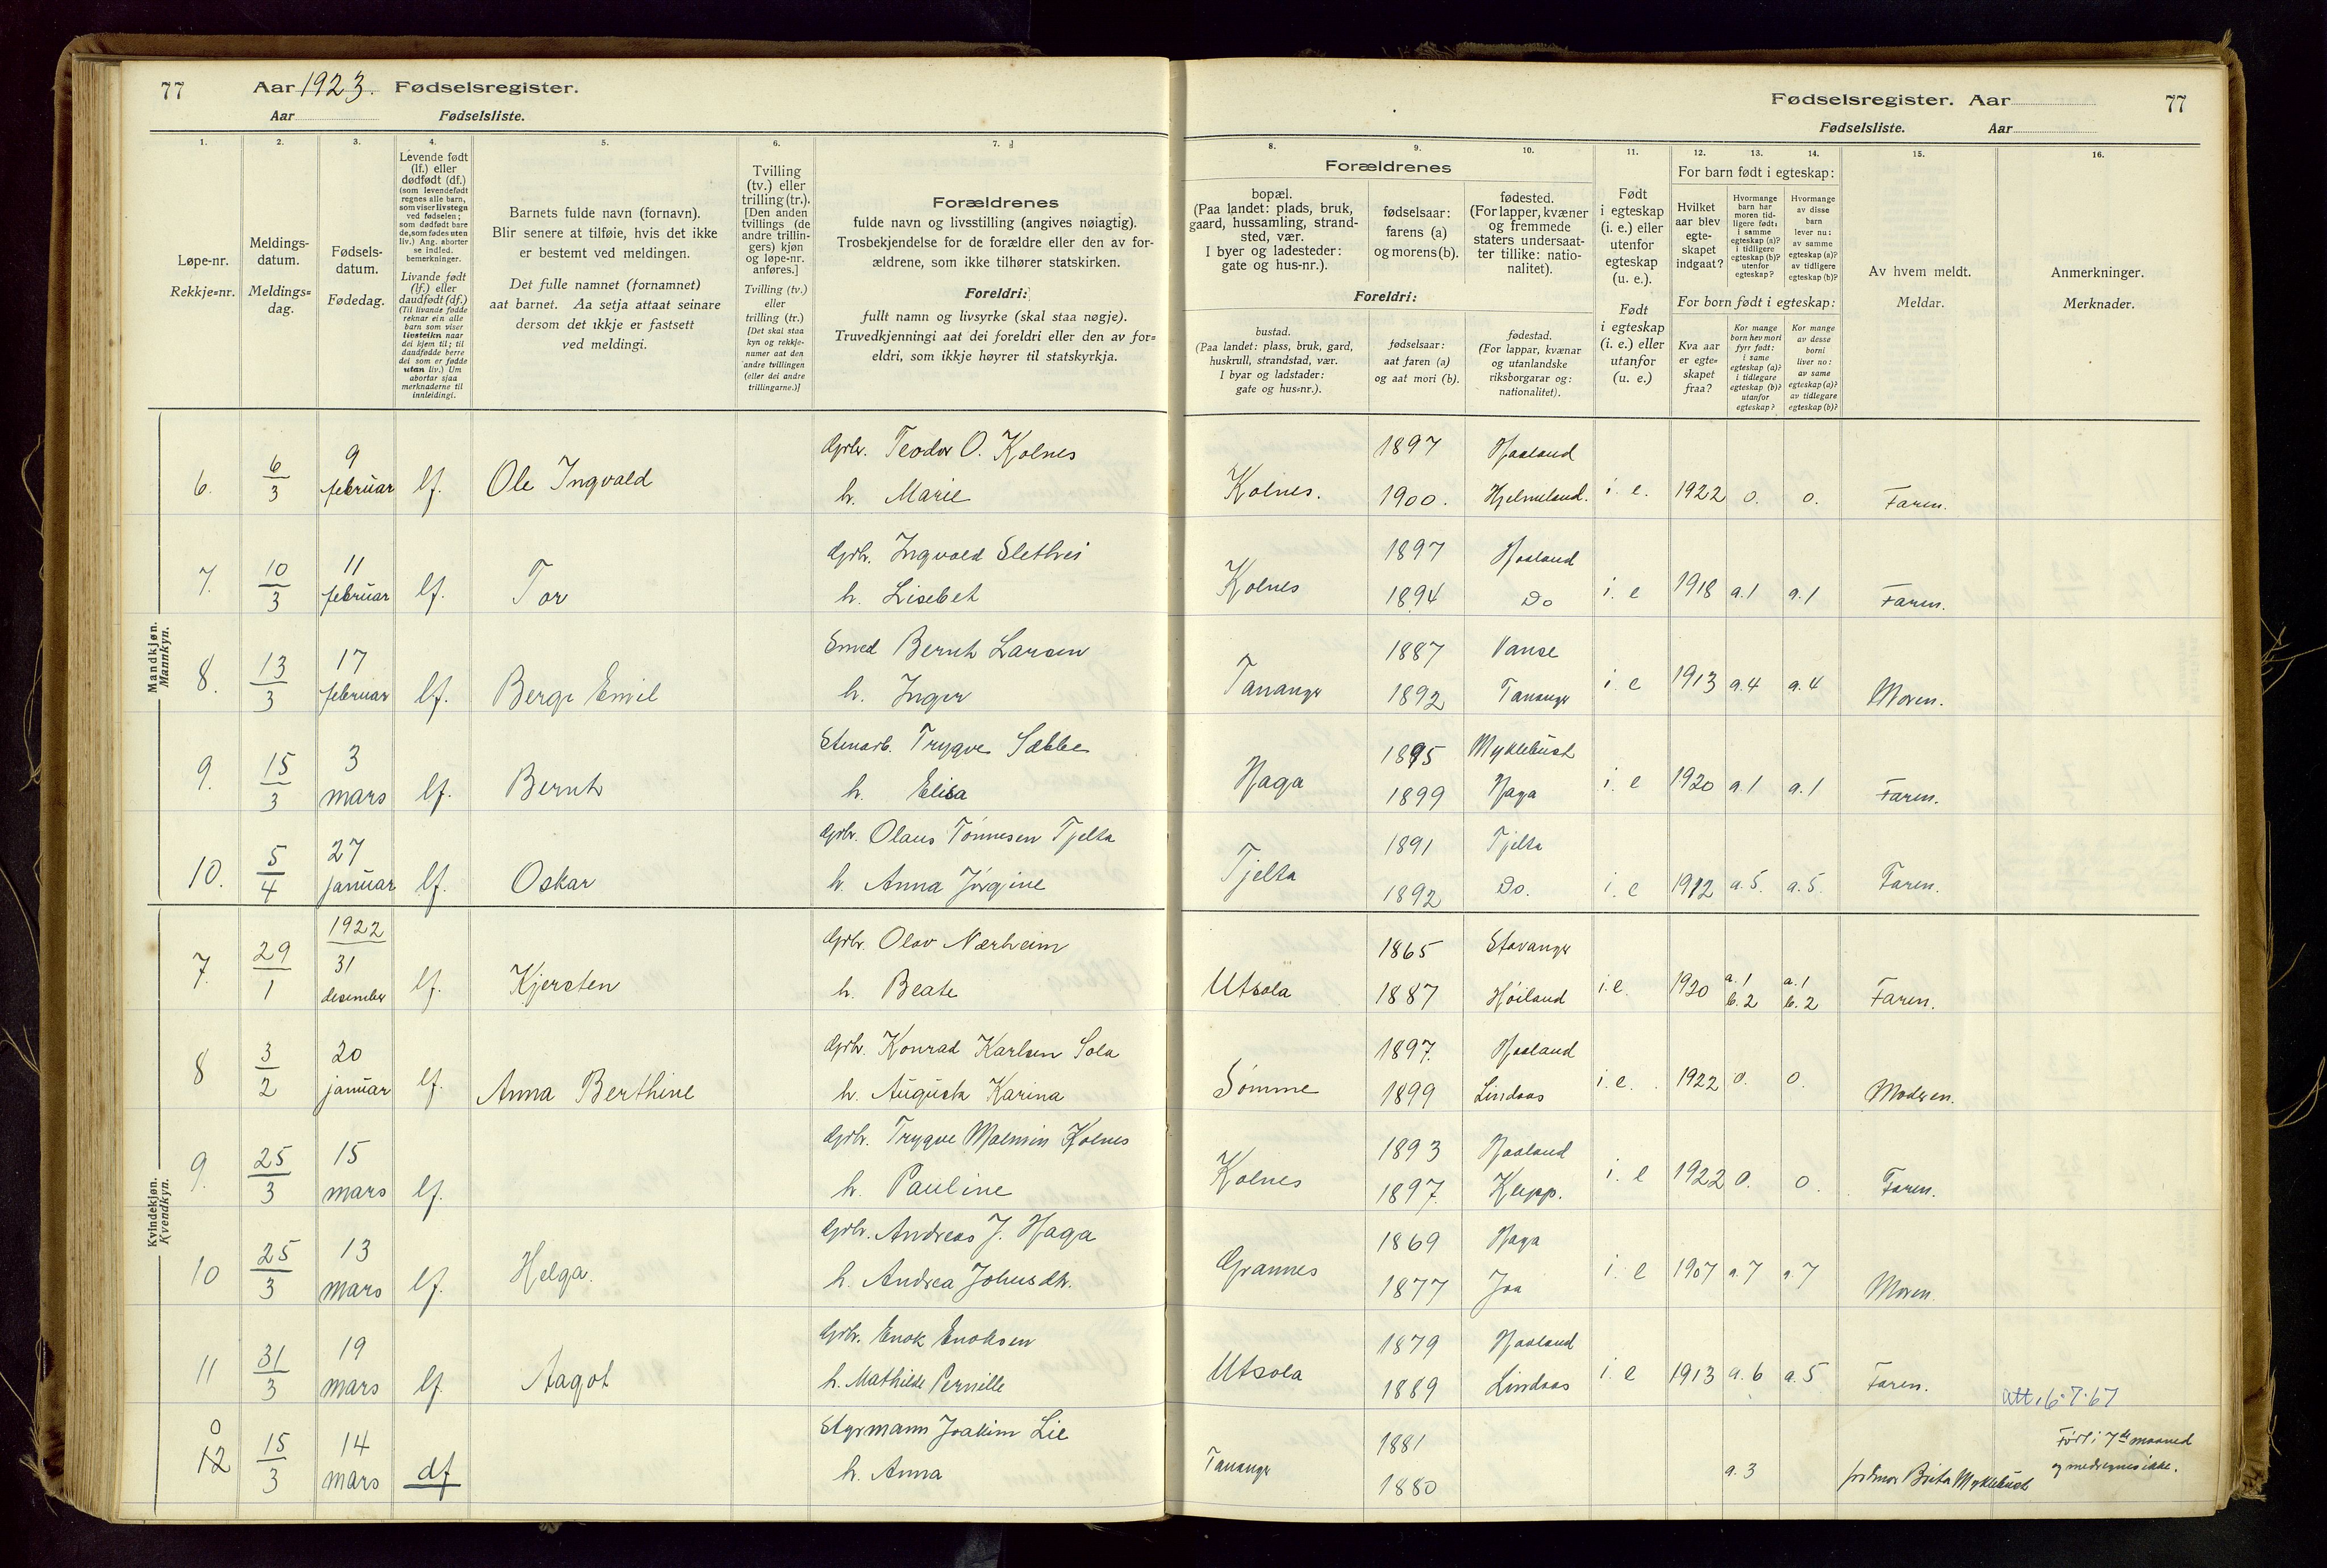 77 Aar 1923. Fødselsregister.
Aar Fødselsliste.
Fødselsregister. Aar 77
Fødselsliste. Aar
1. 2. 3. 4. 5. 6. 7. 8. 9. 10. 11. 12. 13. 14. 15. 16.
Løpe-nr.
Rekkje=nr.
Meldings-
datum.
Meldings=
dag.
Fødsels-
datum.
Fødedag.
Levende født
(lf.) eller
dødfødt (df.)
(som levendefødt
regnes alle barn,
som viser livstegn
ved fødselen;
som dødfødt bare
de, som fødes uten
liv.) Ang. aborter
se indled.
bemerkninger.
Livande født
(lf.) eller
daudfødt (df.)
(Til livande fødde
reknar ein alle
barn som viser
livsteikn naar
dei kjem til; til
daudfødde berre
dei som er fødde
utan liv.) Um
abortar sjaa
merknaderne til
innleidingi.
Barnets fulde navn (fornavn).
Blir senere at tilføie, hvis det ikke
er bestemt ved meldingen.
Det fulle namnet (fornamnet)
aat barnet. Aa setja attaat seinare
dersom det ikkje er fastsett
ved meldingi.
Tvilling
(tv.) eller
trilling (tr.).
[Den anden
tvillings (de
andre trillin-
gers) kjøn
og løpe-nr.
anføres.]
Tvilling (tv.)
eller
trilling (tr.)
[Det skal staa
kyn og rekkje-
numer aat den
andre tvillingen
(eller dei andre
trillingarne.)]
Forældrenes
fulde navn og livsstilling (angives nøiagtig).
Trosbekjendelse for de forældre eller den av for-
ældrene, som ikke tilhører statskirken.
Foreldri:
fullt namn og livsyrke (skal staa nøgje).
Truvedkjenningi aat dei foreldri eller den av for=
eldri, som ikkje høyrer til statskyrkja.
Forældrenes
bopæl.
(Paa landet: plads, bruk,
gaard, hussamling, strand-
sted, vær.
I byer og ladesteder:
gate og hus-nr.).
fødselsaar:
farens (a)
og morens (b).
fødested.
(For lapper, kvæner
og fremmede
staters undersaat-
ter tillike: natio-
nalitet).
Foreldri:
bustad.
(Paa landet: plass, bruk, gard,
huskrull, strandstad, vær.
I byar og ladstader:
gate og hus=nr.).
fødselsaar:
aat faren (a)
og aat mori (b).
fødestad.
(For lappar, kvænar
og utanlandske
riksborgarar og:
nationalitet).
Født
i egteskap
(i. e.) eller
utenfor
egteskap
(u. e.).
Født
i egteskap
(i. e.) eller
utanfor
(u. e.)
For barn født i egteskap:
Hvilket
aar blev
egte-
skapet
indgaat?
Hvormange
barn har
moren tid-
ligere født:
i samme
egteskap (a)?
i tidligere
egteskap (b)?
utenfor
egteskap?
Hvormange
av disse
barn
lever nu:
av samme
egteskap (a)?
av tidligere
egteskap (b)?
For born født i egteskap:
Kva aar
er egte=
skapet
fraa?
Kor mange
born hev mori
fyrr født:
i same
egteskap (a)?
i tidlegare
egteskap (b)?
utanfor
egteskap?
Kor mange
av desse
borni
liver no:
av same
egteskap (a)?
av tidlegare
egteskap (b)?
Av hvem meldt.
Meldar.
Anmerkninger.
Merknader.
Mandkjøn.
Mannkyn.
6. 6/3 9 februar lf. Ole Ingvald Grbr. Teodor O. Kolnes h. Marie Kolnes. 1897 1900. Haaland Hjelmeland. i. e. 1922 0. 0. Faren.
7. 10/3 11 februar lf. Tor Grbr. Ingvald Slethei h. Lisebet Kolnes 1897 1894 Haaland Do i. e 1918 a.1 a.1 Faren.
8. 13/3 17 februar lf. Berge Emil Smed Bernh Larsen h. Inger Tananger 1887 1892 Vanse Tananger i. e 1913 a.4 a.4 Moren.
9. 15/3 3 mars lf. Bernh Stenarb. Trygve Sæbbe h. Elisa Haga 1895 1899 Myklebust Haga i. e 1920 a.1 a.1 Faren.
10. 5/4 27 januar lf. Oskar Grbr. Olaus Tønnesen Tjelta h. Anna Jørgine Tjelta 1891 1892 Tjelta Do. i. e 1912 a.5. a.5. Faren.
Kvindekjøn.
Kvendkyn.
7. 29/1 1922 31 desember lf. Kjersten Grbr. Olav Nærheim h. Beate Utsola 1865 1887 Stavanger Høiland i.e. 1920 a.1 b.2 a.1 b.2 Faren.
8 3/2 20 januar lf. Anna Berthine Grbr. Konrad Karlsen Sola h. Augusta Karina Sømme 1897. 1899 Haaland Lindaas i. e. 1922 0. 0. Moderen.
9. 25/3 15 mars lf. Grbr. Trygve Malmin Kolnes h. Pauline Kolnes 1893 1897. Haaland Klepp. i. e 1922 0. 0. Faren.
10 25/3 13 mars lf. Helga. Grbr. Andreas J. Haga h. Andrea Johnsdtr. Grannes 1869 1877 Haga Joa i. e 1907 a.7 a.7 Moren.
11 31/3 19 mars lf. Aagot Grbr. Enok Enoksen h. Mathilde Pernille Utsola 1879 1889 Haaland Lindaas i. e 1913 a.6 a.5 Faren. att. 6.7.67
0 12 15/3 14 mars df Styrmann Joakim Lie h. Anna Tananger 1881 1880 a.3 jordmor Brita Myklebust Født i 7de maaned og medregnes ikke.